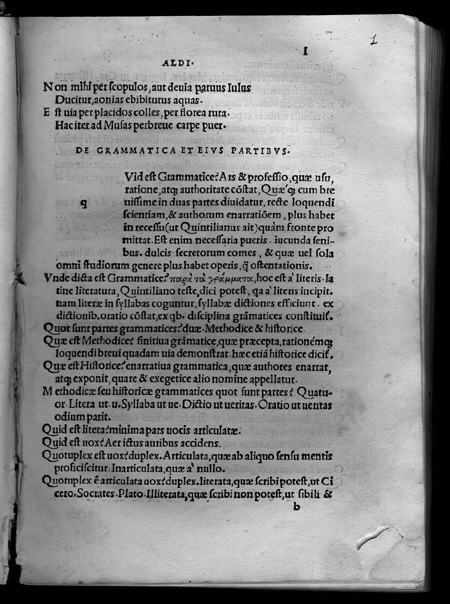 I
1
ALDI.
Non mihi per scopulos, aut deuia paruus Iulus
Ducitur, aonias ebibiturus aquas.
Est uia per placidos colles, per florea rura.
Hac iter ad Musas per breue carpe puer.
DE GRAMMATICA ET EIVS PARTIBVS.
q Vid est Grammatice? Ars & professio, quæ usu,
ratione, atq; authoritate cōstat, Quæ cum bre
uissime in duas partes diuidatur, recte loquendi
scientiam, & authorum enarratiōem, plus habet
in recessu (ut Quintilianus ait) quàm fronte pro
mittat. Est enim necessaria pueris. iucunda seni⸗
bus. dulcis secretorum comes, & quæ uel sola
omni studiorum genere plus habet operis, q̃ ostentationis.
Vnde dicta est Grammatice? παρὰ τὰ γράμματα, hoc est à literis. la
tine literatura, Quintiliano teste, dici potest, qa à literis incipit.
nam literæ in syllabas coguntur, syllabæ dictiones efficiunt. ex
dictionib. oratio cōstat, ex qb. disciplina grāmatices constituit̃.
Quot sunt partes grammatices? duæ. Methodice & historice
Quæ est Methodice? finitiua grāmatice, quæ præcepta, rationēmq;
loquendi breui quadam uia demonstrat. hæc etiā historice dicit̃.
Quæ est Historice? enarratiua grammatica, quæ authores enarrat,
atq; exponit, quare & exegetice alio nomine appellatur.
Methodicæ seu historicæ grammatices quot sunt partes? Quatu⸗
or. Litera ut. u. Syllaba ut ue. Dictio ut ueritas. Oratio ut ueritas
odium parit.
Quid est litera? minima pars uocis articulatæ.
Quid est uox? Aer ictus auribus accidens.
Quotuplex est uox? duplex. Articulata, quæ ab aliquo sensu mentis
proficiscitur. Inarticulata, quæ a' nullo.
Quotuplex ē articulata uox? duplex. literata, quæ scribi potest, ut Ci
cero. Socrates. Plato. Illiterata, quæ scribi non potest, ut sibili &
b